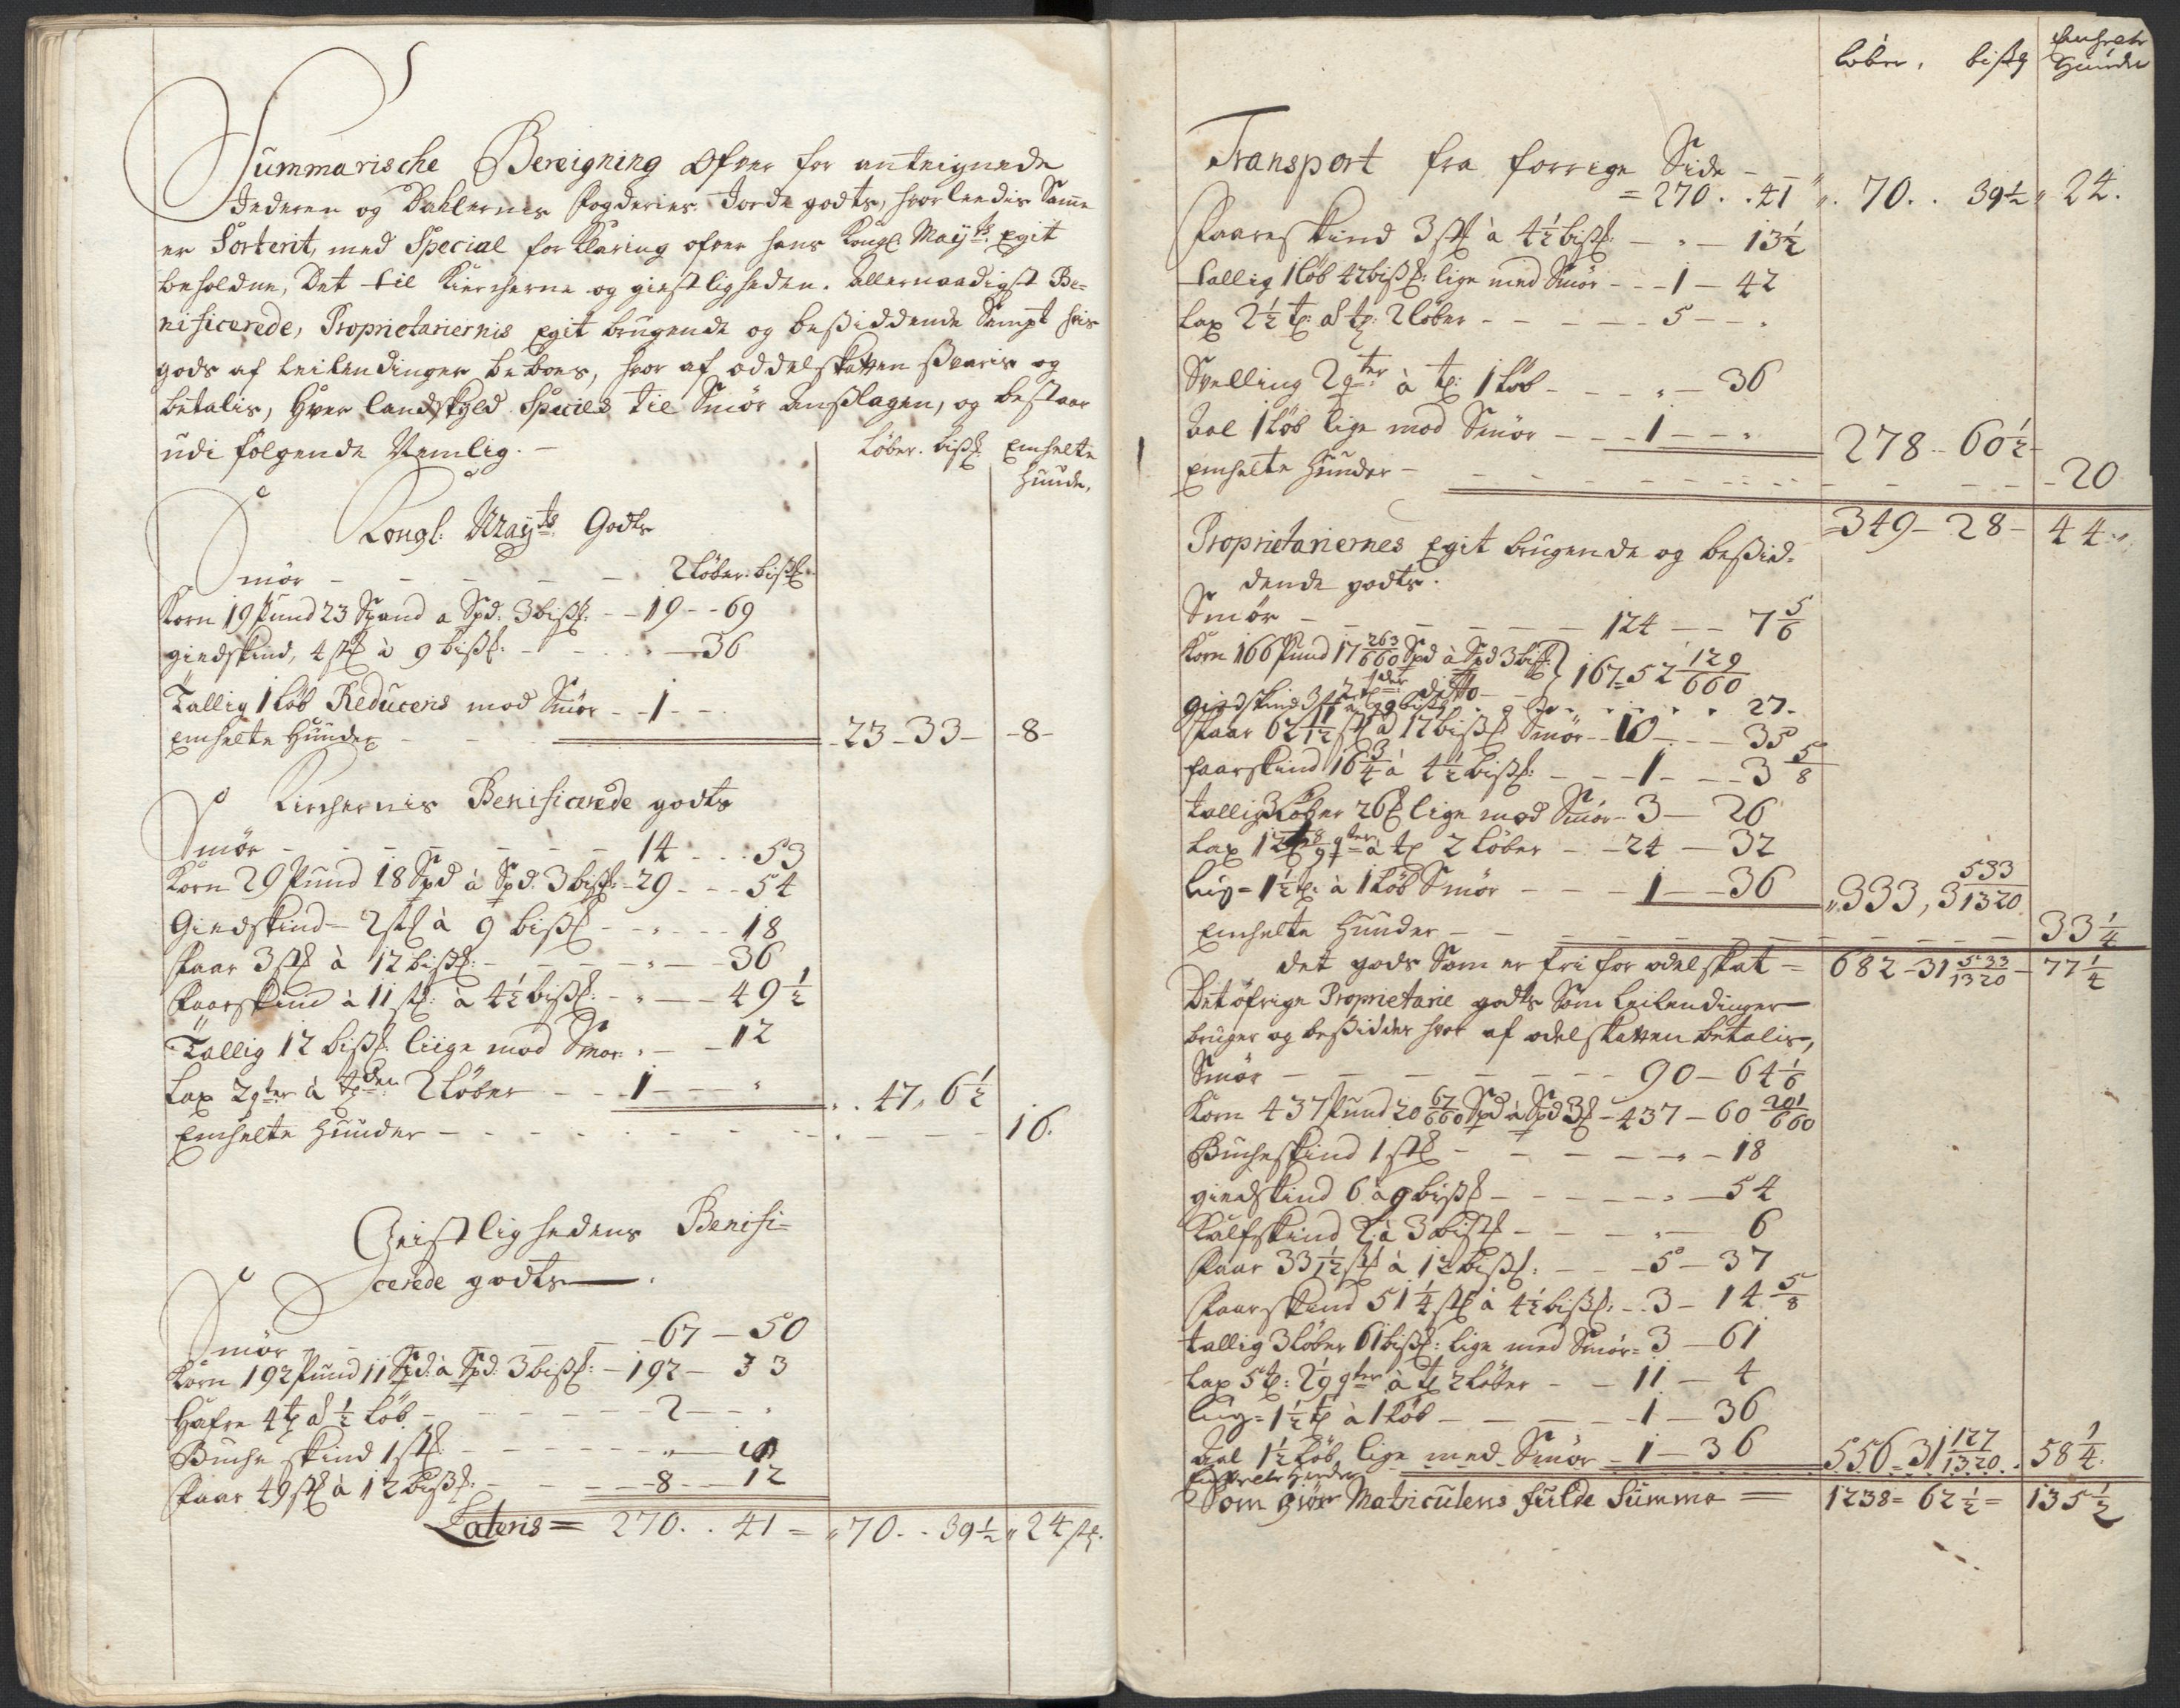 Summarische Bereigning Ofver for anteignede
Jederen og Dahlernes Fogderies Jorde godts, hvorleedis Same
er Sorterit, med Special forKlaring ofver hans Kongl: Mayts: Egit
beholdne, Det til Kiercherne og giestligheden. allernaadigst Be-
nificerede, Proprietariernis Egit brugende og besiddende Sampt his
gods af Leilendinger beboes, hvor af oddelskatten svaris og
betalis, Hver landskyld Species til Smör anslagen, og bestaar
udi følgende Nemlig. -
Løber. bisℓ: Emhelte
Huude,
Kongl: Mayts: Godts
Smør - - - - - 2 løber. bisℓ
Korn 19 Pund 23 Spand a Spd: 3 bisℓ: - 19 - - 69
giedskind, 4 stℓ à 9 bisℓ: - - - 36
Tallig 1 løb Reduceris mod Smör - - 1 - -
Emhelte Huuder - - - 23 - 33 - - 8 -
Kirchernis Benificerede godts
Smør - - - - - 14 - - 53
Korn 29 Pund 18 Spd à Spd: 3 bisℓ: - 29 - - - 54
Giedskind - 2 stℓ à 9 bisℓ - - - - 18
Faar 3 stℓ à 12 bisℓ: - - - - 36
Faarskind à 11 stℓ: à 4½ bisℓ: - - - 49½
Tallig 12 bisℓ: liige mod Smør: - - 12
Lax 2 qter à tℓden 2 Löber - - 1 - - - 47, 6½
Emhelte Huuder - - - - - - - 16.
Geistlighedens Benifi-
cerede godts
Smør - - - - - 67 - 50
Korn 192 Pund 11 Spd: à Spd: 3 bisℓ: - 192 - 33
Hafre 4 tℓ à ½ Løb - - - - 2 - -
Buche skind 1 stℓ: - - - - -
Faar 49 stℓ à 12 bisℓ: - - - 8 - 12
Lateris = 270. . 41 = 70. - 39½ 24 stℓ.
løber, bisℓ Emhelte
Huuder
Transport fra forrige Side - -
= 270. . 41 70. . 39½ 24.
Faareskind 3 stℓ à 4½ bisℓ: - - - 13½
Tallig 1 løb 42 bisℓ: lige med Smør - - - 1 - 42
Lax 2½ tℓ: à tℓ: 2 løber - - - - - 5 - -
Spelling 2 qter: à tℓ: 1 Løb - - - 36
Aal 1 Løb lige mod Smör - - - 1 - - 278 - 60½ -
Emhelte Huuder - - - - - - - 20
349 - 28 - 44
Proprietariernes Egit brugende og besid-
dende godts.
Smør - - - - - 124 - - 7 5/6
Korn 166 Pund 17 263/660 Spd à Spd 3 bisℓ: 167 - 52 129/660
giedskind 3 stℓ à 9 bisℓ - - - - 27 -
Faar 62 1/12 stℓ à 12 bisℓ Smör - 10 - - 35
faarskind 16¾ à 4½ bisℓ: - - - 1 - - 3 5/8
tallig 3 Løber 26 ℓ lige mod Smör - 3 - 26
Lax 12 tℓ 8/9 qter à tℓ 2 Løber - - 24 - 32
Lüg = 1½ tℓ: à 1 Løb Smör - - - 1 - - 36 333, 3 533/1320
Emhelte Huuder - - - - - - 33¼
det gods Som er fri for odelskat = 682 - 31 533/1320 - 77¼
Det øfrige Proprietarie godts Som Leilendinger
bruger og besidder hvor af odelskatten betalis,
Smör - - - - - 90 - 64 1/6
Korn 437 Pund 20 67/660 Spd à Spd 3 ℓ - 437 - 60 201/660
Bucheskind 1 stℓ - - - - - 18
giedskind 6 à 9 bisℓ - - - - 54
Kalfskind 2 à 3 bisℓ - - - - 6
Faar 33 1/12 stℓ à 12 bisℓ: - - - 5 - 37
Faarskind 51¼ stℓ à 4½ bisℓ: - - 3 - 14 5/8
tallig 3 Løber 61 bisℓ: lige med Smör = 3 - 61
Lax 5 tℓ: 2 1/9 qter à tℓ 2 Løber - - 11 - 4
Lüg = 1½ tℓ à 1 Løb - - - - 1 - 36
Aal 1½ Løb lige med Smör - 1 - 36 556 - 31 127/1320 58¼.
Emhelte Huuder
Som giör Matriculens fulde Summa = 1238 = 62½ = 135½